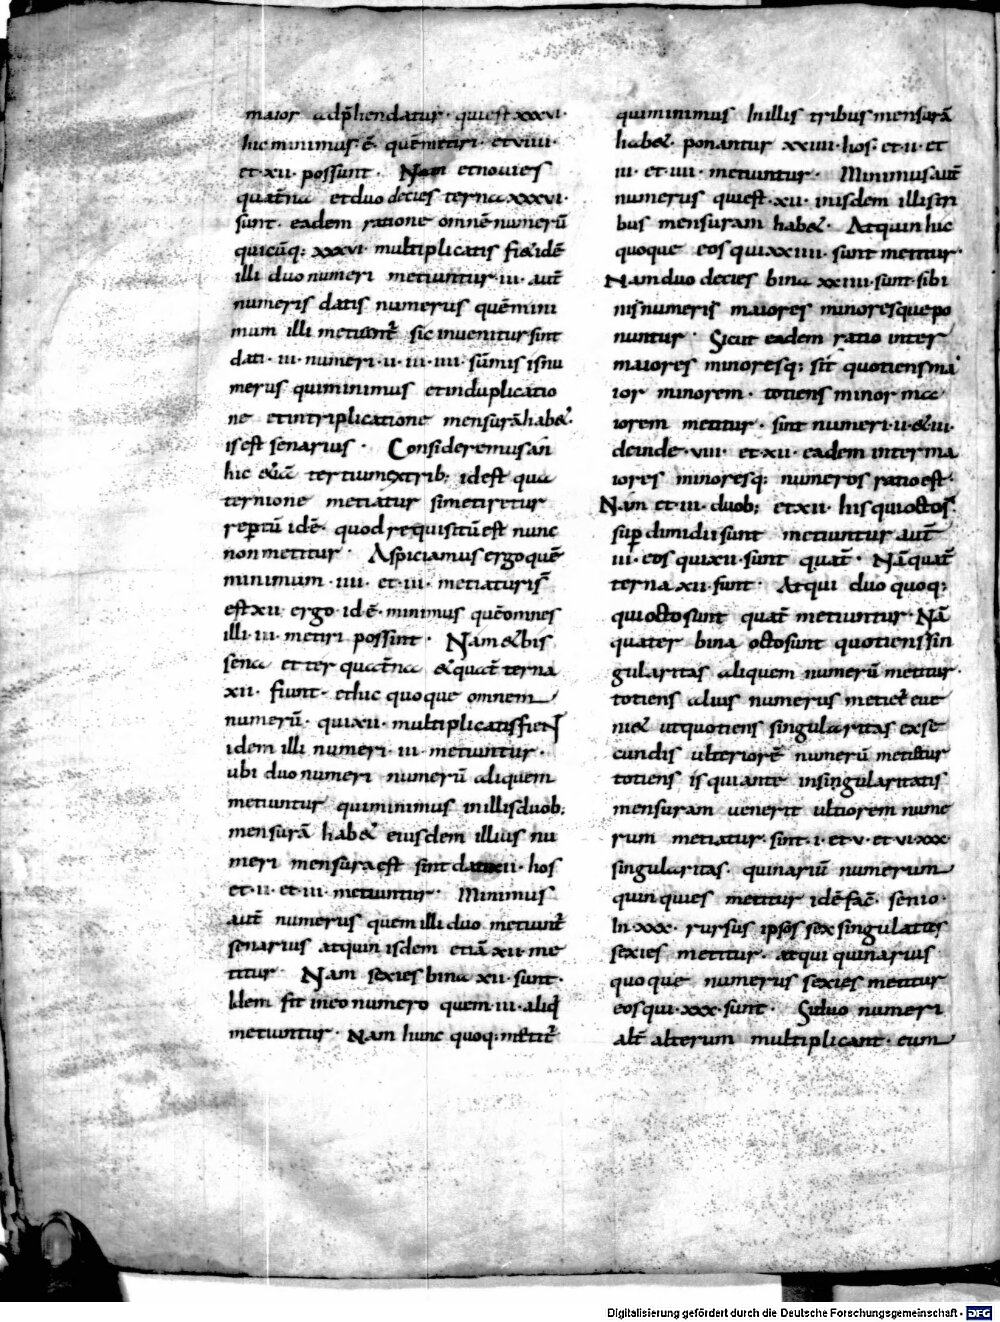 maior adp̄hendatur· quiest xxxvi·
hic minimus· ē· quē metiri· et viiii·
et· xii· possunt· Nam et nouies
quat̄na et duo decies terna xxxvi·
sunt· eadem ratione omnē numerū
quicūq; xxxvi· multiplicatis fi& idē
illi duo numeri metiuntur· iii· aut̄
numeris datis numerus quē mini
mum illi metiunt̄ sic inuenitur sint
dati· iii· numeri· ii· iii· iiii· sūmis is nu
merus qui minimus et in duplicatio
ne et in triplicatione mensurā hab&·
is est senarius· Consideremus an
hic &iā tertium ex trib; id est qua
ternione metiatur si metiretur
rep̄tū idē· quod requisitū est nunc
non metitur· Aspiciamus ergo quē
minimum· iiii· et· iii· metiatur is
est xii· ergo· id ē· minimus quē omnes
illi· iii· metiri possint· Nam & bis
sena et ter quat̄na & quat̄ terna
xii· fiunt· et hic quoque omnem
numerū· qui xii· multiplicans fieNT
idem illi numeri· iii· metiuntur·
ubi duo numeri numerū aliquem
metiuntur qui minimus in illis duob;
mensurā hab& eiusdem illius nu
meri mensura est sint dati xii· hos
et· ii· et· iii· metiuntur· Minimus
aut̄ numerus quem illi duo metiunt̄
senarius atqui nisdem etiā xii· me
titur· Nam sexies bina xii· sunt·
Idem fit in eo numero quem· iii· aliq̄
metiuntur· Nam hunc quoq; metit̄
qui minimus In illis tribus mensurā
hab&· ponantur xxiiii· hos· et· ii· et
iii· et· iiii· metiuntur· Minimus aut̄
numerus qui est· xii· in isdem illis in
bus mensuram hab&· Atqui n hic
quoque eos qui xxiiii· sunt metitur·
Nam duo decies bina xxiiii· sunt· sibi
nis numeris maiores minoresque po
nuntur· Sicut eadem ratio inter
maiores minoresq; sit̄ quotiens ma
ior minorem· totiens minor ma
iorem metitur· sint numeri· ii· &· iii·
deinde· viii· et· xii· eadem inter ma
iores minoresq; numeros ratio est·
Nam et· iii· duob; et xii· his qui octo s̄
sup̄ dimidii sunt metiuntur aut̄
iii· eos qui xii· sunt quat̄· Nā quat̄
terna xii· sunt· Atqui duo quoq;
qui octo sunt quat̄ metiuntur· Nā
quater bina octo sunt quotiens sin
gularitas aliquem numerū metitur·
totiens alius numerus metiet̄ eue
ni& ut quotiens singularitas ex se
cundis ulteriorē numerū metitur
totiens is qui ante in singularitatis
mensuram uenerit ult̄iorem nume
rum metiatur· sint· i· et· v· et vi· xxx·
singularitas· quinariū numerum
quinquies metitur idē fac̄· senio·
In xxx· rursus ipsos sex singulatis
sexies metitur· atqui quinarius
quoque numerus sexies metitur
eos qui· xxx· sunt· Si duo numeri
alt̄ alterum multiplicant· eum
Digitalisierung gefördert durch die Deutsche Forschungsgemeinschaft - DFG